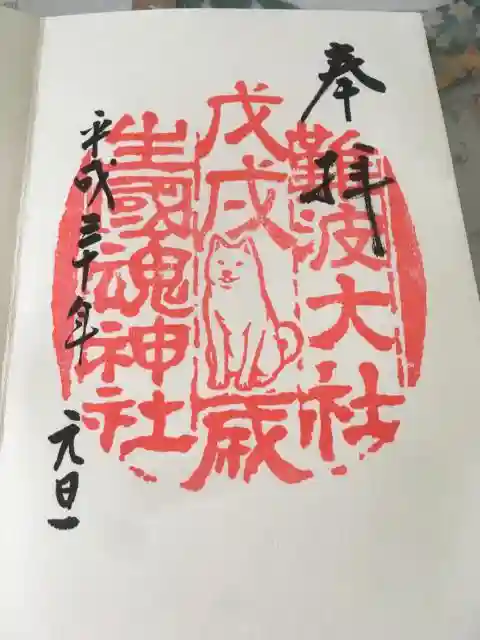 奉拝
難波大社
戊戌
歳
生國魂神社
平成三十年
元旦